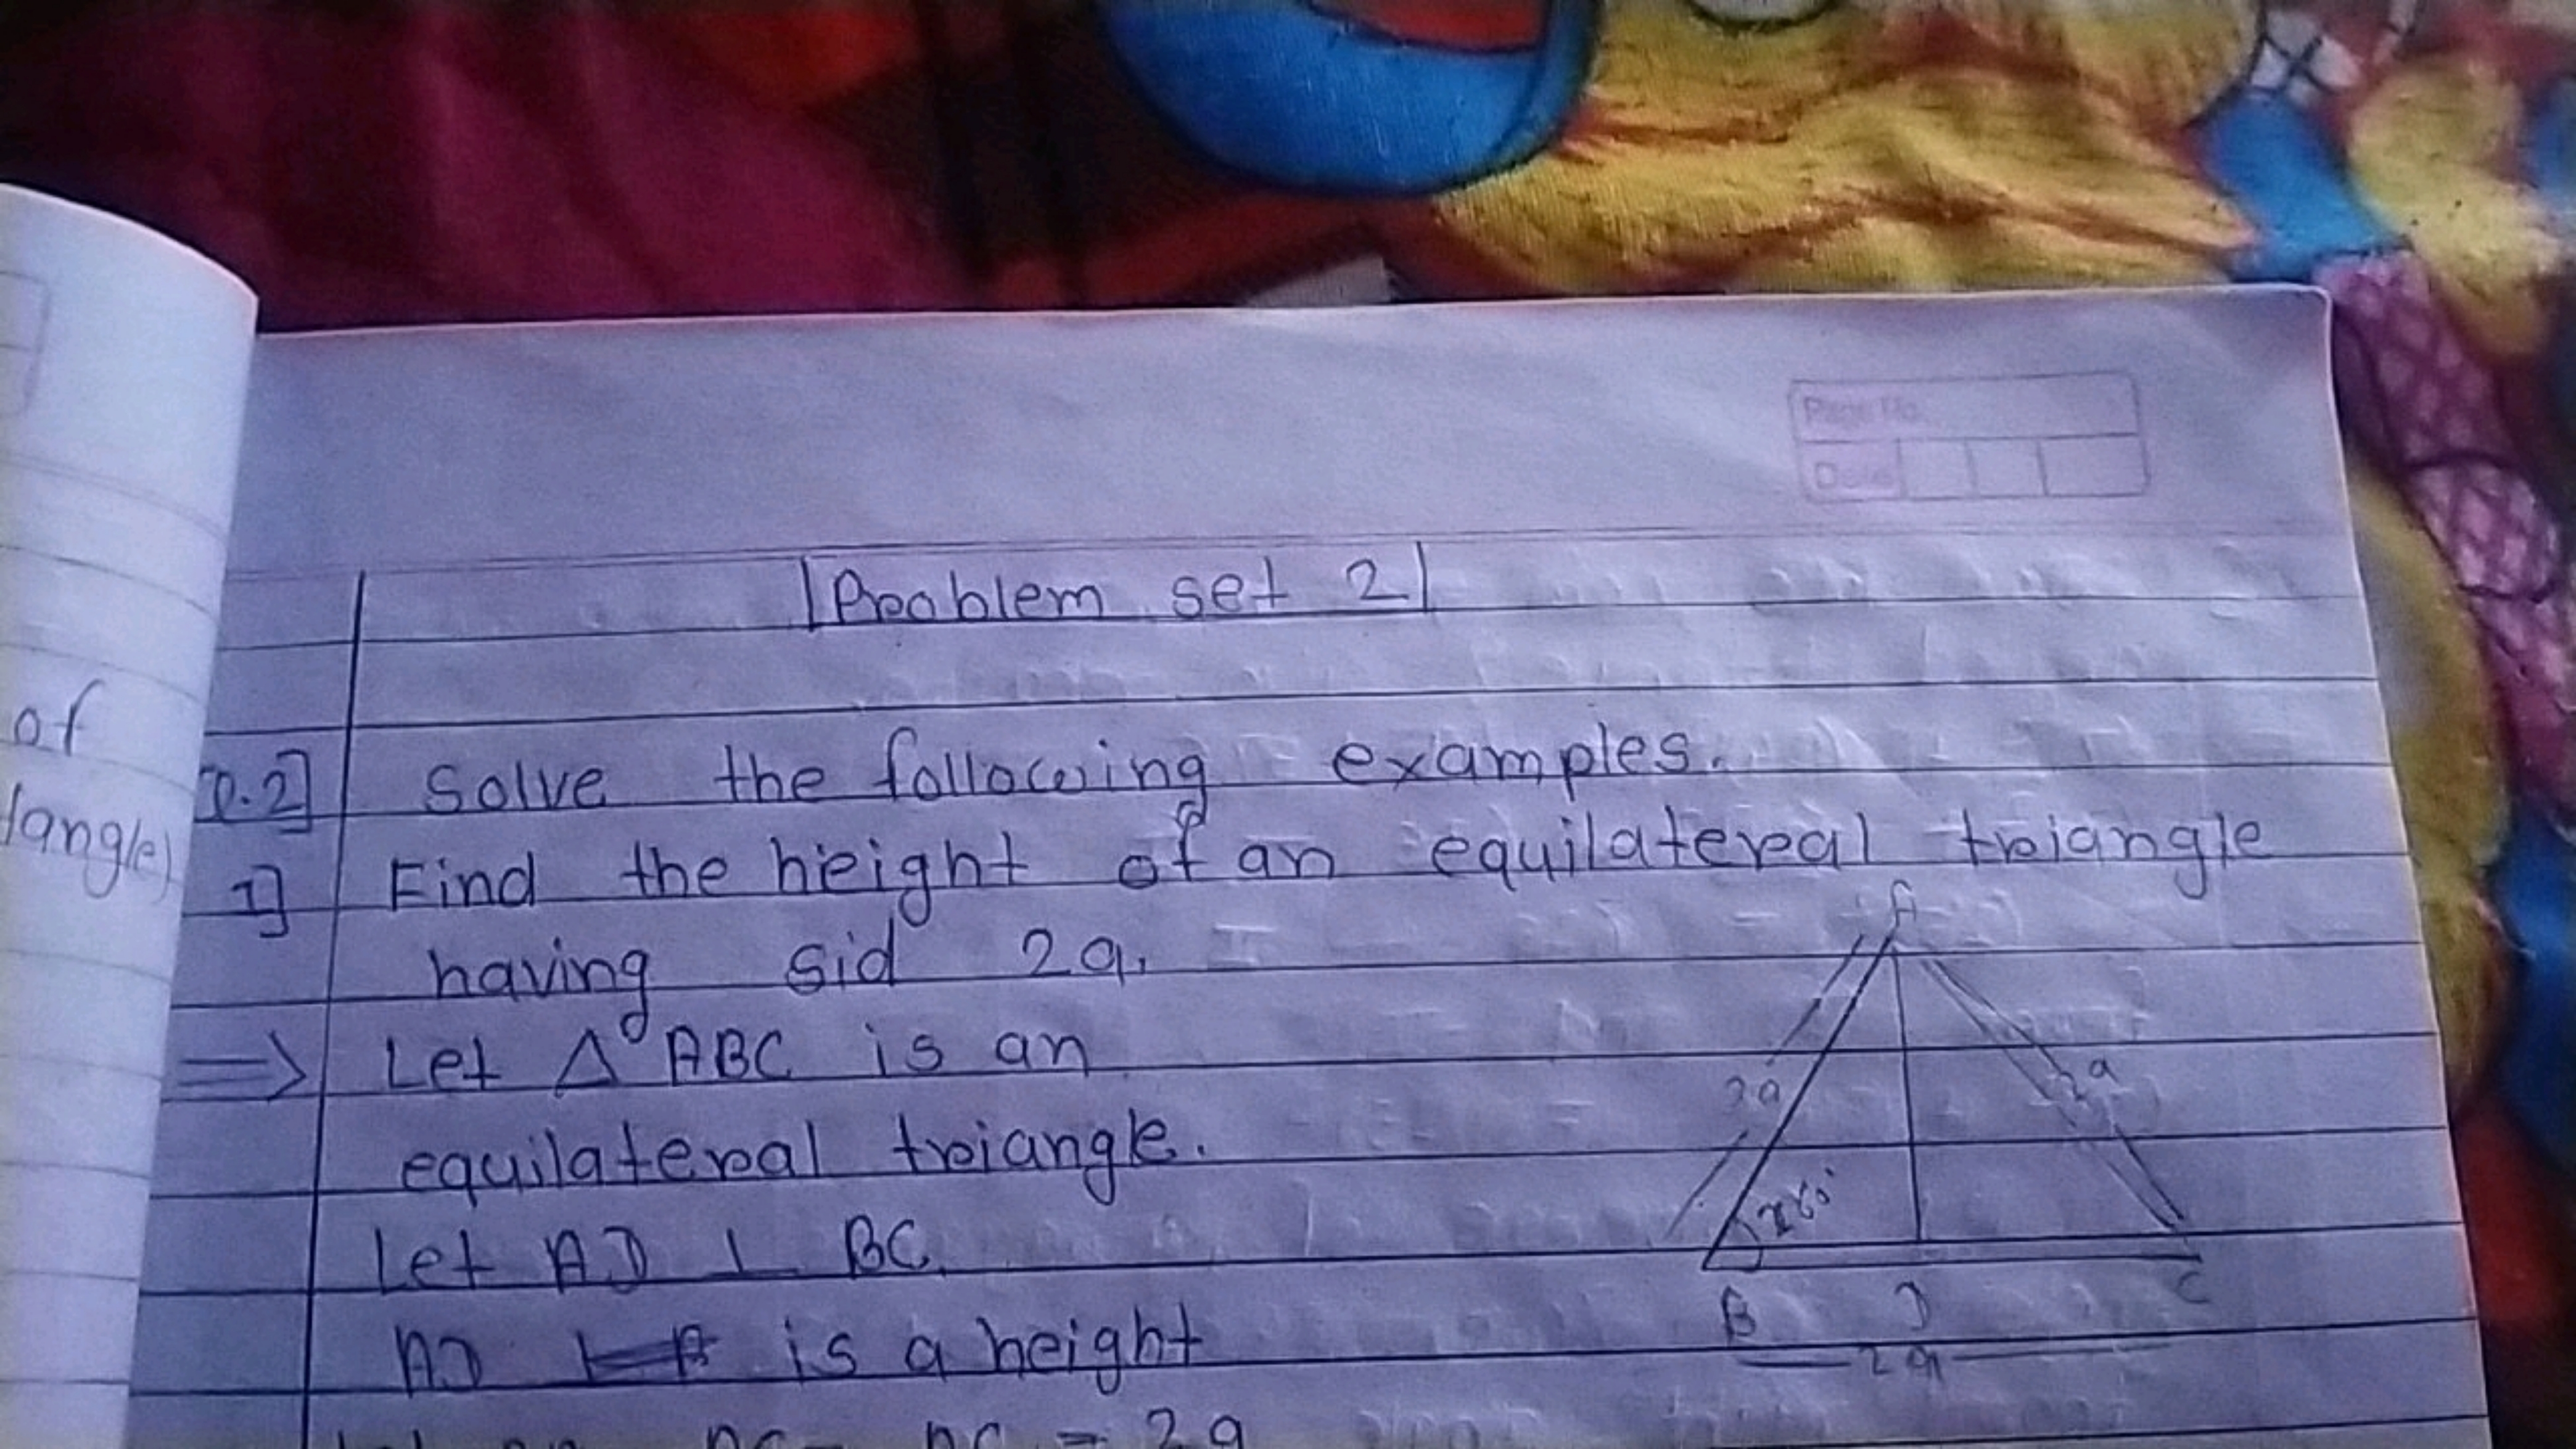 Page No.
Date
Problem set 2
Q.2] Solve the following examples.
1] Find the height of an equilateral triangle
having sid 2a.
=> Let Δ ABC is an
equilateral triangle.
Let AD ⊥ BC.
AD is a height
BC = 2a
of
angle)
A
2a
2a
60°
B D C
2a